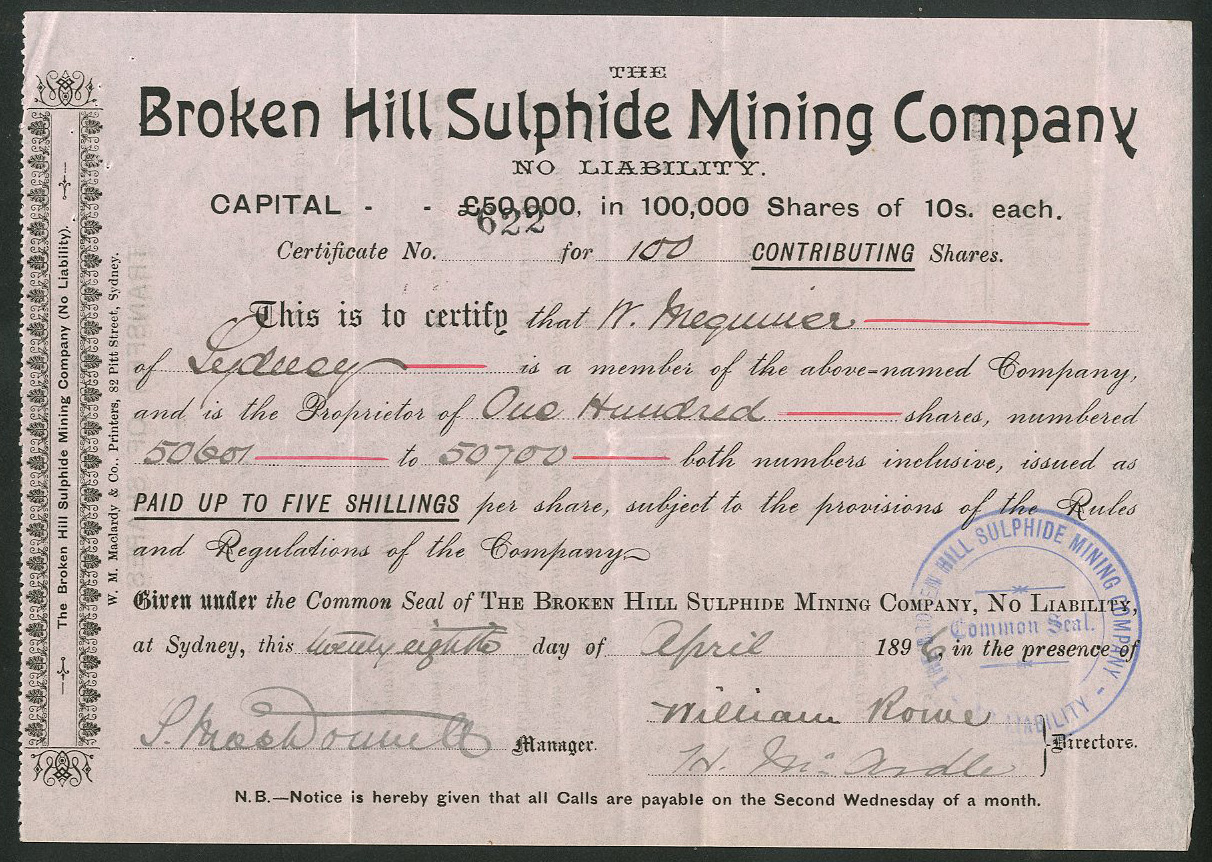 THE
Broken Hill Sulphide Mining Company
NO LIABILITY.
CAPITAL - - £50,000, in 100,000 Shares of 10s. each.
Certificate No. 622 for 100 CONTRIBUTING Shares.
This is to certify that W. Mcquiver
of Sydney is a member of the above-named Company,
and is the Proprietor of One Hundred shares, numbered
50601 to 50700 both numbers inclusive, issued as
PAID UP TO FIVE SHILLINGS per share, subject to the provisions of the Rules
and Regulations of the Company
Given under the Common Seal of THE BROKEN HILL SULPHIDE MINING COMPANY, NO LIABILITY,
at Sydney, this twenty eighth day of April 1896, in the presence of
S. MacDonnell Manager.
William Rowe
H. McArdle
Directors.
N.B.—Notice is hereby given that all Calls are payable on the Second Wednesday of a month.
The Broken Hill Sulphide Mining Company (No Liability).
W. M. Maclardy & Co., Printers, 82 Pitt Street, Sydney.
THE BROKEN HILL SULPHIDE MINING COMPANY - NO LIABILITY -
Common Seal.